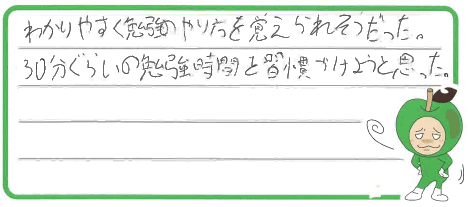 わかりやすく勉強のやり方を覚えられそうだった。
30分ぐらいの勉強時間と習慣づけようと思った。